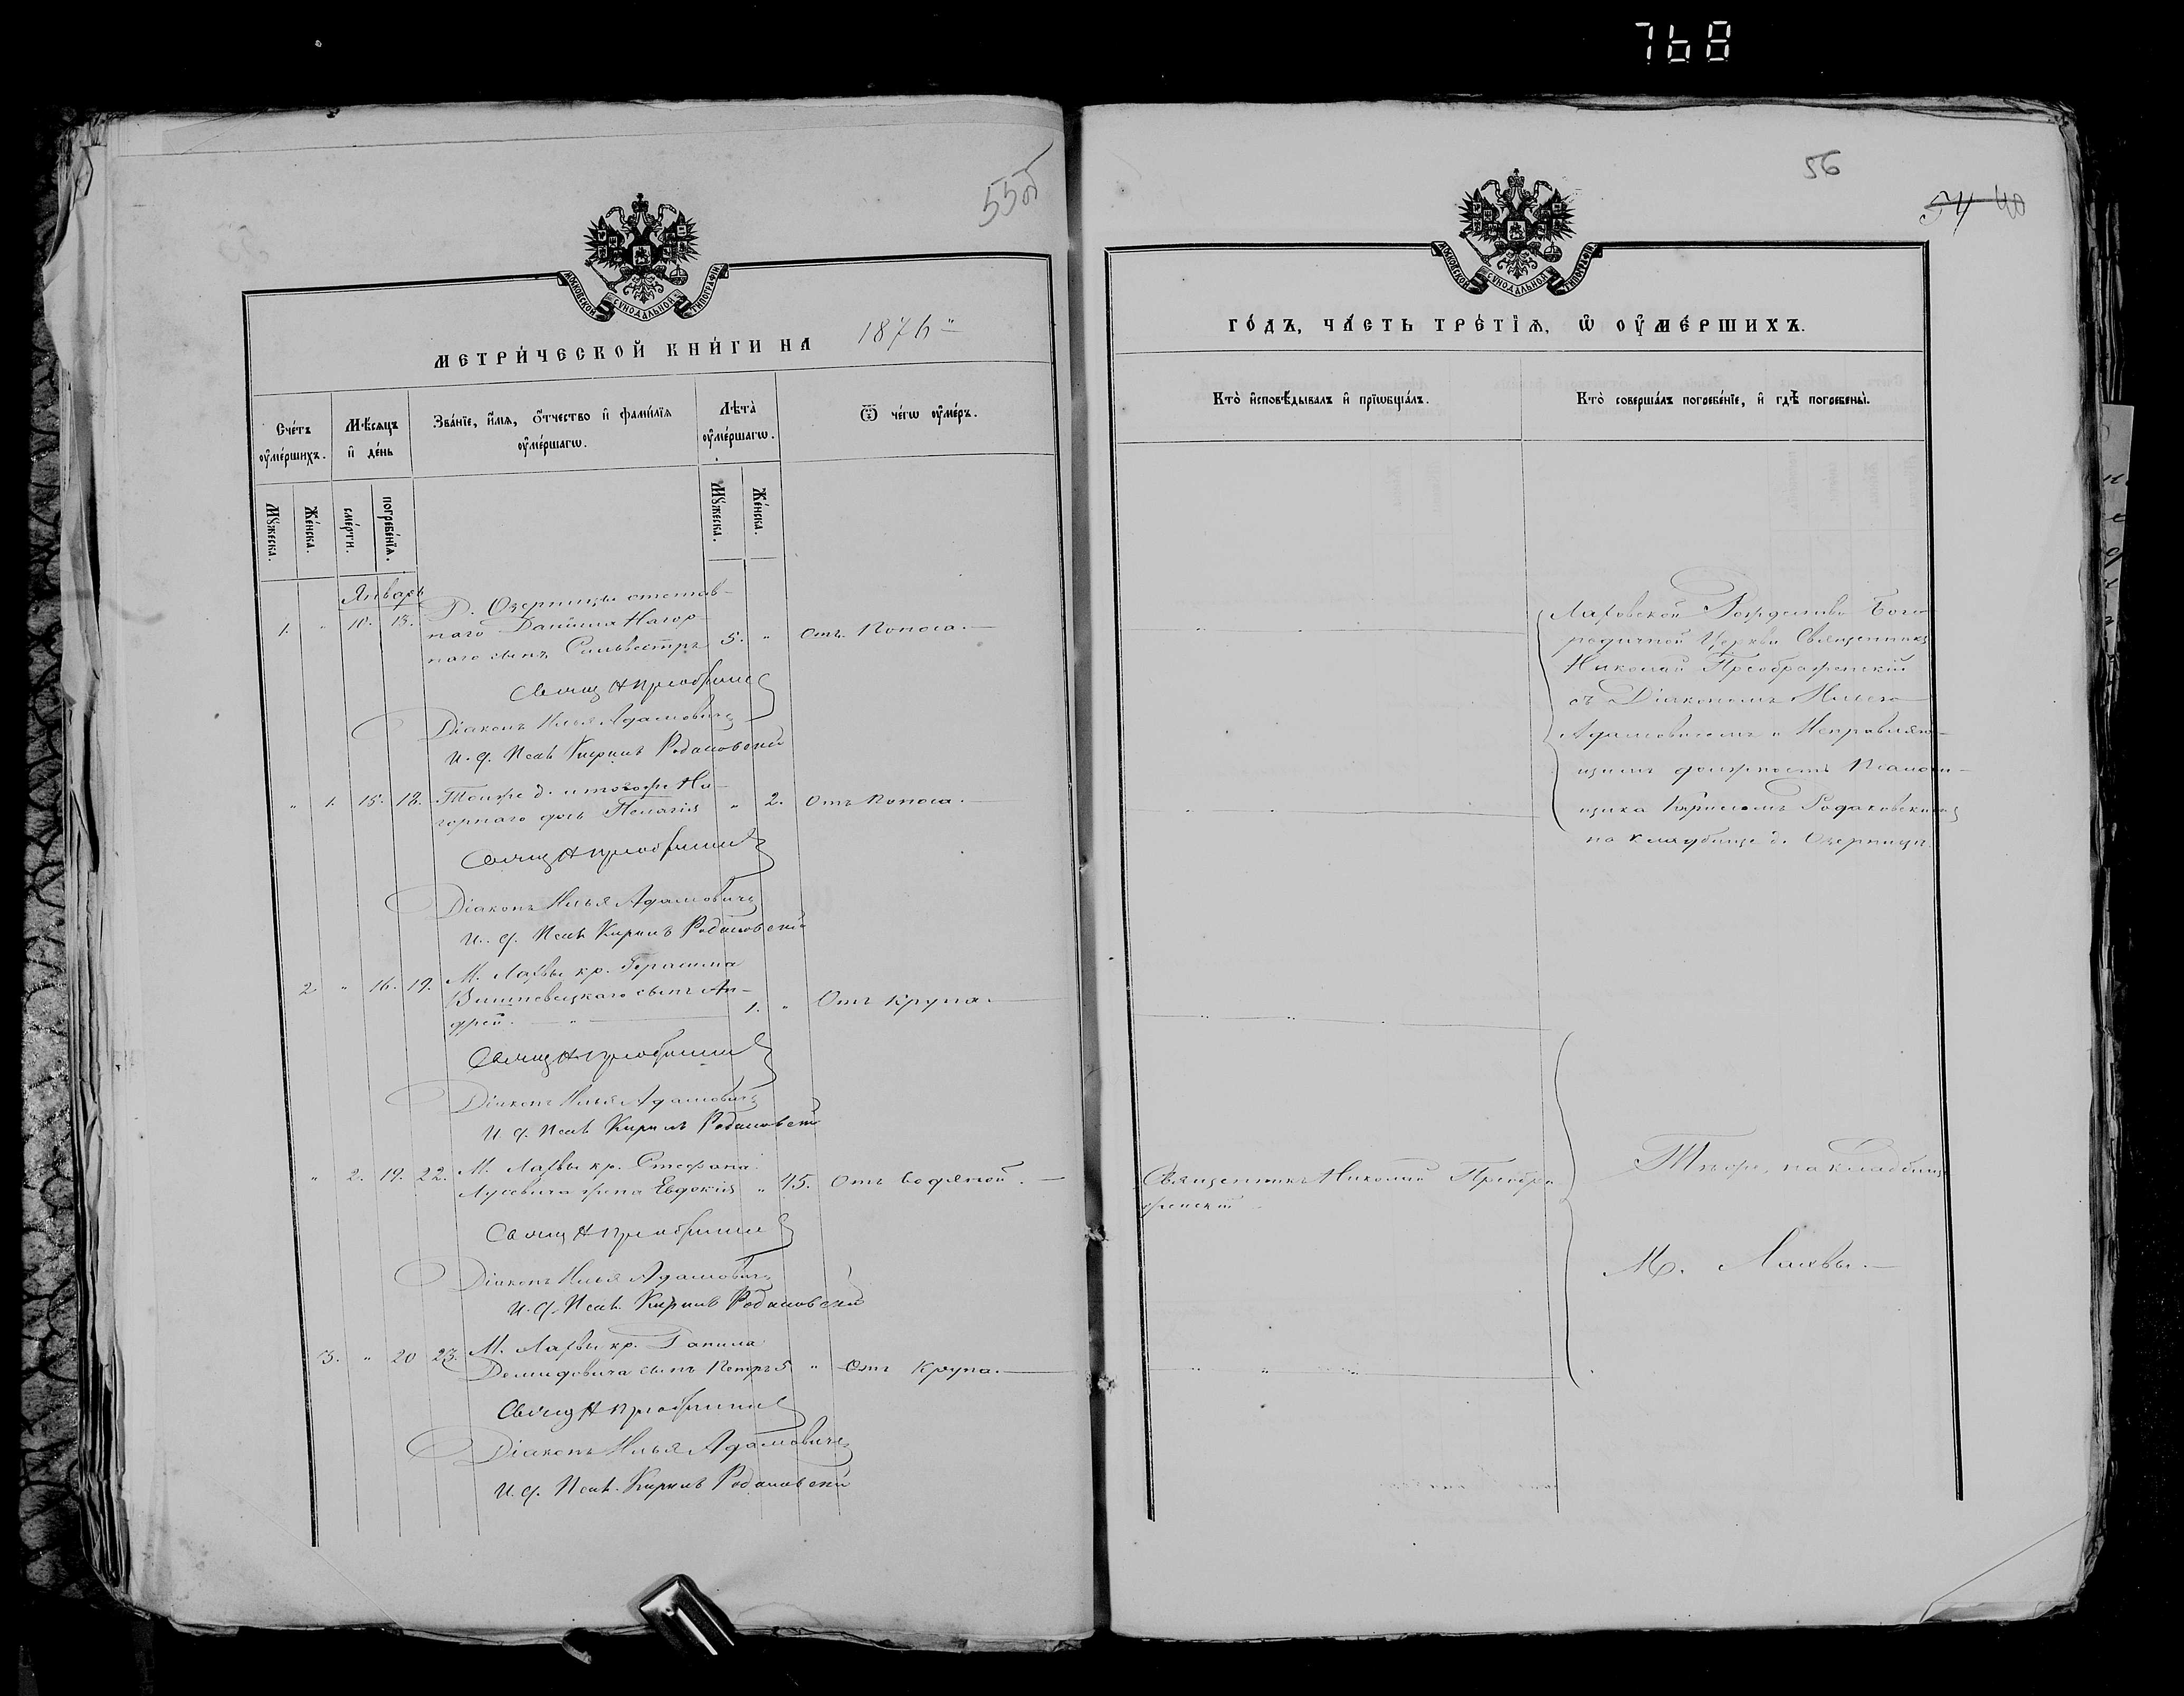 768
55об
МОСКОВСКОЙ СѴНОДАЛЬНОЙ ТИПОГРАФІИ
МЕТРИ́ЧЕСКОЙ КНИ́ГИ НА 1876
Сче́тъ оу҆ме́ршихъ.
Мѣ́сяцъ и҆ де́нь
Зва́нїе, и҆́мѧ, ѻ҆́тчество и҆ фами́лїѧ оу҆ме́ршагѡ.
Лѣ́та оу҆ме́ршагѡ.
Ѿ чегѡ̀ оу҆ме́ръ.
Мꙋ́жеска.
Же́нска.
сме́рти.
погребе́нїѧ.
Мꙋ́жеска.
Же́нска.
Январь
1. " 10. 13. Д. Озерницы отстав-
наго Даніила Нагор-
наго сынъ Сильвестръ 5. " Отъ Поноса.
Свящ Н Преображенс
Діаконъ Илья Адамовичъ
И. д. Псал Кирилъ Родаковскій
" 1. 15. 18. Тойже д. и тогоже На-
горнаго дочь Пелагія " 2. Отъ Поноса.
Свящ Н Преображенс
Діаконъ Илья Адамовичъ
И. д. Псал Кирилъ Родаковскій
2 " 16. 19. М. Лахвы кр. Герасима
Вишневецкаго сынъ Ан-
дрей. 1. " Отъ Крупа.
Свящ Н Преображенс
Діаконъ Илья Адамовичъ
И. д. Псал Кирилъ Родаковскій
" 2. 19. 22. М. Лахвы кр. Стефана
Лусевича жена Евдокія " 45. Отъ Водяной.
Свящ Н Преображенс
Діаконъ Илья Адамовичъ
И. д. Псал. Кирилъ Родаковскій
3. " 20 23. М. Лахвы кр. Данила
Демидовича сынъ Петръ 5 " Отъ Крупа.
Свящ Н Преображенс
Діаконъ Илья Адамовичъ
И. д. Псал. Кирилъ Родаковскій
56
54 40
МОСКОВСКОЙ СѴНОДАЛЬНОЙ ТИПОГРАФІИ
ГО́ДЪ, ЧА́СТЬ ТРЕ́ТЇѦ, Ѡ҆ ОУ҆МЕ́РШИХЪ.
Кто̀ и҆сповѣ́дывалъ и҆ прїѡбща́лъ.
Кто̀ соверша́лъ погребе́нїе, и҆ гдѣ̀ погребены̀.
Лаховской Рождество Бого
родичной Церкви Священникъ
Николай Преображенскій
съ Діакономъ Ильею
Адамовичемъ и Исправляю-
щимъ должность Псалом-
щика Кириломъ Родаковскимъ
на кладбище д. Озерницы.
Священникъ Николай Преобра
женскій
Тѣже, на кладбище
М. Лахвы.